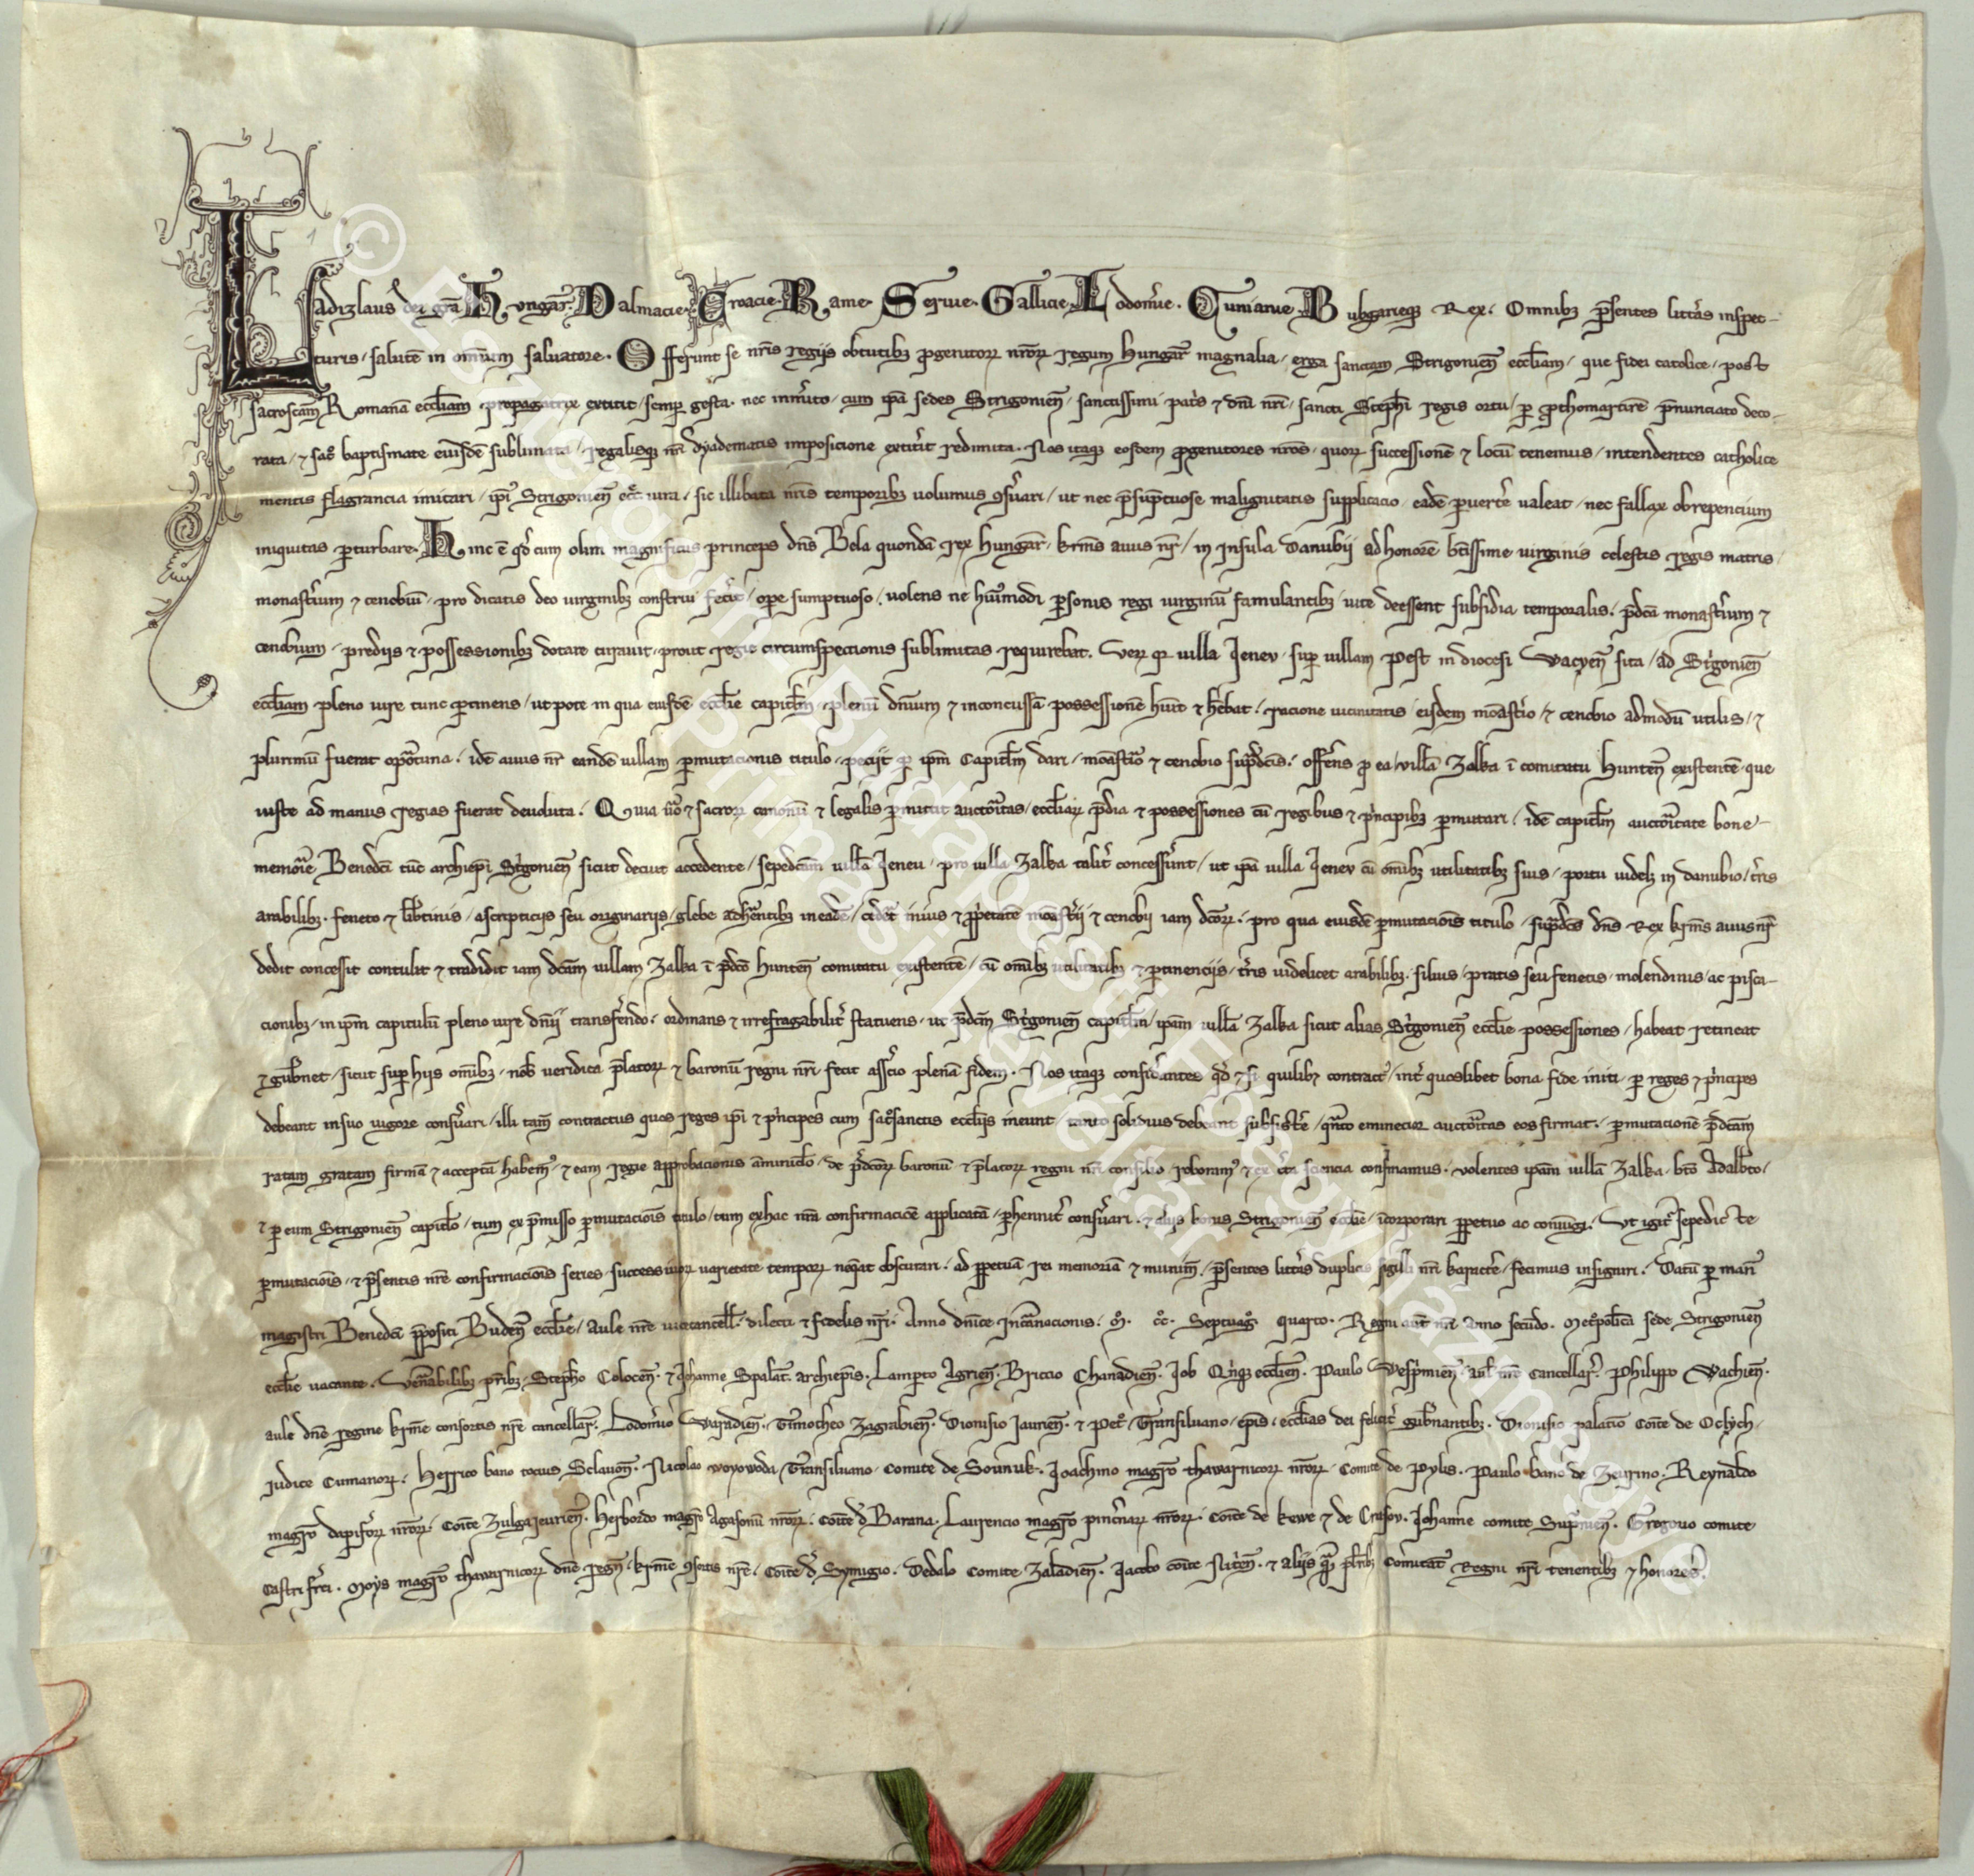 Ladizlaus dei gra Hungar. Dalmacie. Croacie. Rame. Seruie. Gallicie. Lodomerie. Cumanie. Bulgarieq Rex. Omnibz presentes litteras inspec-
turis, salutem in omnium saluatore. Offerunt se nris regiis obtutibz progenitorum nrorum regum Hungar magnalia, erga sanctam Strigonien eccliam, que fidei catolice, post
sacroscam Romana eccliam propagatrix extitit, semper gesta. nec inmerito, cum ipa sedes Strigonien, sanctissimi patris et dni nri, sancti Stephi regis ortu, per prothomartirem prenunciato deco-
rata, et sacro baptismate eiusde sublimata, regalisq nri dyadematis imposicione extiterit redimita. Nos itaq eosdem progenitores nros, quorum successione et locu tenemus, intendentes catholice
mentis flagrancia imitari, ipi Strigonien ecc iura, sic illibata nris temporibz uolumus conseruari, ut nec presumptuose malignitatis supplicacio eade peruertere ualeat, nec fallax obrepencium
iniquitas perturbare. Hinc e qd cum olim magnificus princeps dns Bela quonda rex Hungar, krms auus nr, in insula danubij ad honore btissime uirginis celestis regis matris,
monasterium et cenobiu, pro dicatis deo uirginibz construi fecerit, opere sumptuoso, uolens ne huiusmodi personis regi uirginu famulantibz uite deessent subsidia temporalis, predcm monasterium et
cenobium, predijs et possessionibz dotare curauit, prout regie circumspectionis sublimitas requirebat. Verum quia uilla Jenev, super uillam Pest in diocesi Wacyen sita, ad Strigonien
eccliam pleno iure tunc pertinens, utpote in qua eiusde ecclie capitlm, plenu dnium et inconcussa possessione huit et hebat, racione uicinitatis eisdem monasterio et cenobio admodu utilis, et
plurimu fuerat oportuna, ide auus nr eande uillam permutacionis titulo, peciit per ipm Capitlm dari, monasterio et cenobio supradcis, offerens pro ea uilla Zalka i comitatu Hunten existente, que
iuste ad manus regias fuerat deuoluta. Quia uero et sacrorum canonu et legalis permittit auctoritas, eccliarum predia et possessiones cu regibus et principibz permutari, ide capitlm auctoritate bone
memorie Benedci tuc archiepi Strigonien sicut decuit accedente, sepedcam uilla Jeneu, pro uilla Zalka taliter concesserunt, ut ipa uilla Jenev cu omibz utilitatibz suis, portu uidelz in danubio, terris
arabilibz, feneto et libertinis, ascripticijs seu originarijs, glebe adherentibz in eade, cederet in ius et proprietate monasterii et cenobij iam dcorum, pro qua eiusde permutacois titulo, supradcus dns Rex krms auus nr
dedit concessit contulit et tradidit iam dcam uillam Zalka i predco Hunten comitatu existente, cu omibz utilitatibz et pertinencijs, terris uidelicet arabilibz, siluis, pratis seu fenetis, molendinis, ac pisca-
cionibz, in ipm capitulu pleno iure dnij transferendo, ordinans et irrefragabiliter statuens, ut predcm Strigonien capitlm, ipam uilla Zalka sicut alias Strigonien ecclie possessiones, habeat retineat
et gubernet, sicut super hijs omibz, nob ueridica prelatorum et baronu regni nri fecit assercio plena fidem. Nos itaq considerantes qd et si quilibet contractus, inter quoslibet bona fide initi, per reges et principes
debeant in suo uigore conseruari, illi tamen contractus quos reges ipi et principes cum sacrosanctis ecclijs ineunt, tanto solidius debeant subsistere, quanto eminecior auctoritas eos firmat, permutacione predcam
ratam gratam firma et accepta habemus, et eam regie approbacionis aminiculo, de predcorum baronu et prelatorum regni nri consilio roboramus et ex certa sciencia confirmamus, uolentes ipam uilla Zalka, bto Adalberto,
et per eum Strigonien capitlo, tum ex premisso permutacois titulo, tum ex hac nra confirmacioe applicata, perhenniter conseruari, et alijs bonis Strigonien ecclie, incorporari perpetuo ac coniungi. Vt igitur sepedicte
permutacois, et presentis nre confirmacois series, successiuorum uarietate temporum nequeat obscurari, ad perpetua rei memoria et munimen, presentes litteras duplicis sigilli nri karactere, fecimus insigniri. Datu per man
magistri Benedci prepositi Buden ecclie, aule nre uicecancell, dilecti et fidelis nri. Anno dnice Incarnacionis. M. CC. Septuag. quarto. Regni aut nri anno secundo. Metropolitana sede Strigonien
ecclie uacante. Venerabilibz prbz, Stepho Colocen. et Johanne Spalat. archiepis. Lamperto Agrien. Briccio Chanadien. Job Quinqz ecclien. Paulo Vesprimien, aule nre cancellar. Philippo Wachien.
aule dne regine krme consortis nre cancellar. Lodomerio Waradien. Timotheo Zagrabien. Dionisio Jaurien. et Petro Transiluano, epis, ecclias dei feliciter gubernantibz. Dionisio palatio Coite de Oclych,
iudice Cumanorum. Herrico bano tocius Sclauon. Nicolao woyowoda Transiluano, comite de Sounuk. Joachino magro thawarnicorum nrorum, Comite de Pylis. Paulo bano de Zeurino. Reynaldo
magro dapiferorum nrorum, Coite Zulgageurien. Herbordo magro Agasonu nrorum, Coite de Barana. Laurencio magro pincernarum nrorum, Coite de Kewe et de Crasov. Johanne comite Supprunien. Gregorio comite
Castri ferrei. Moys magro thawarnicorum dne regin, krme consortis nre, Coite de Symigio. Dedalo comite Zaladien. Jacobo coite Nitrien. et alijs quam plribz Comitat Regni nri tenentibz et honores.
© Esztergom-Budapesti Főegyházmegye
Prímási Levéltár